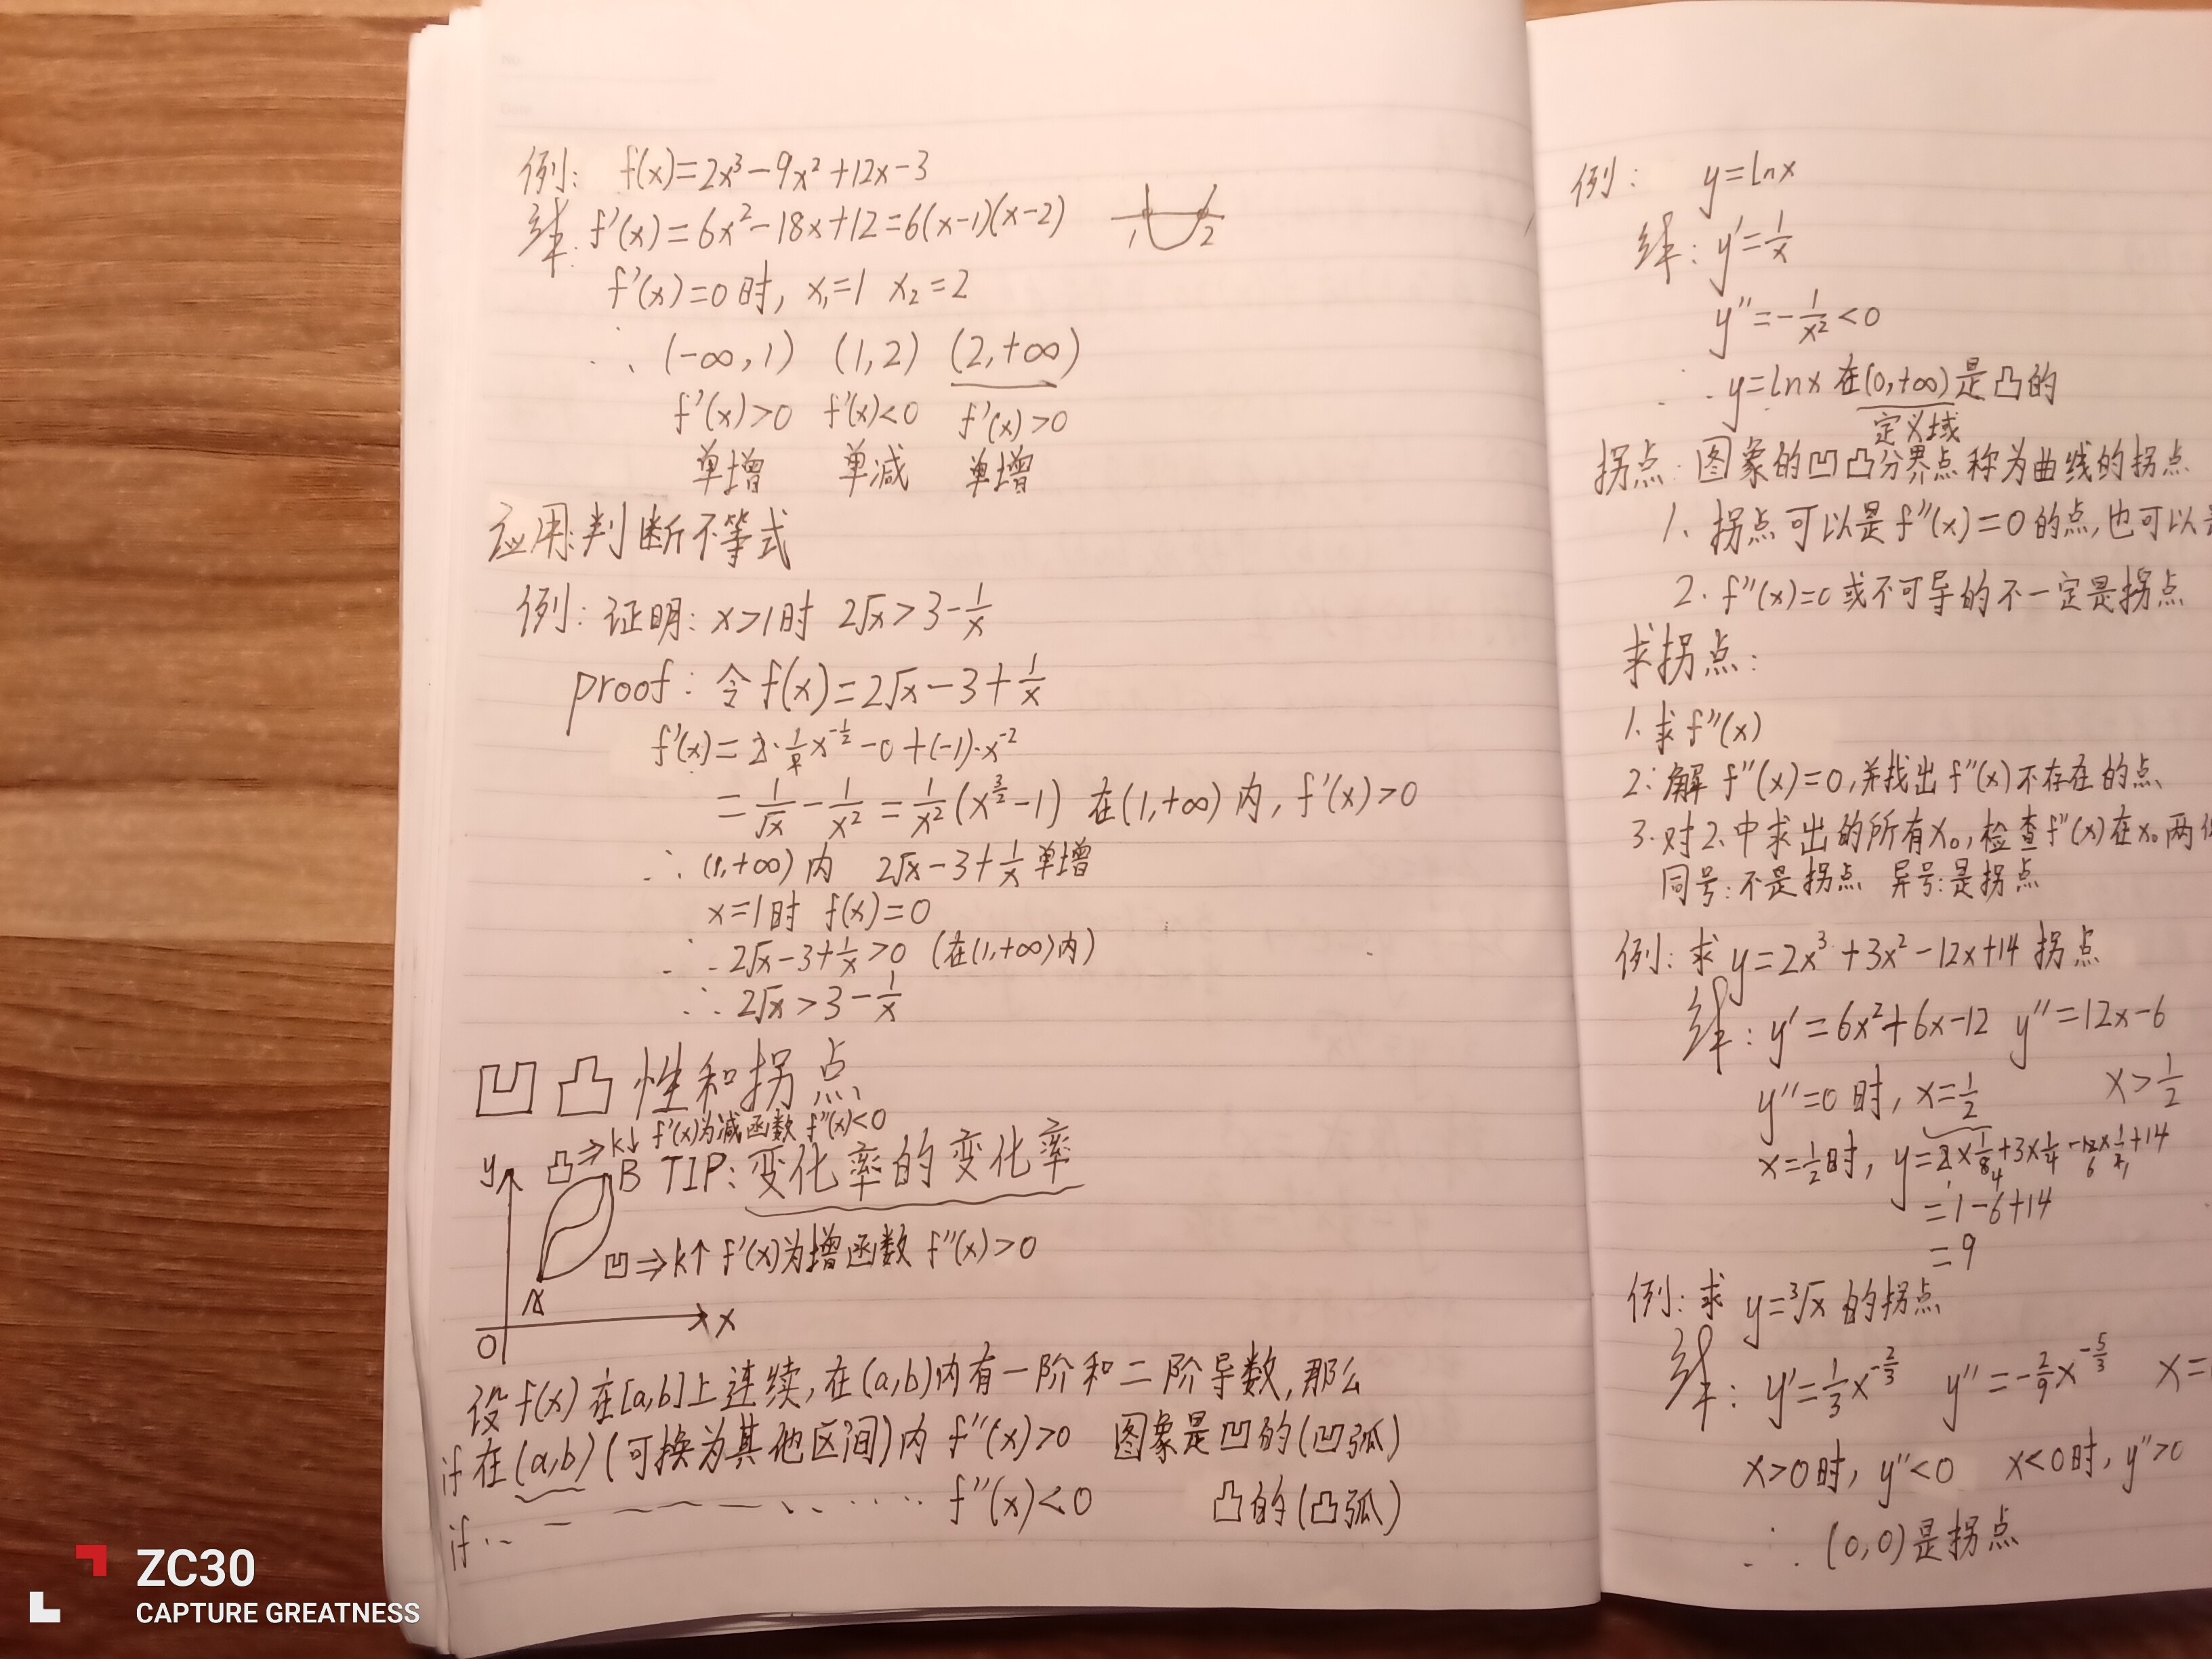 例: f(x)=2x³-9x²+12x-3
解: f'(x)=6x²-18x+12=6(x-1)(x-2)
1 2
f'(x)=0时, x₁=1 x₂=2
∴ (-∞,1) (1,2) (2,+∞)
f'(x)>0 f'(x)<0 f'(x)>0
单增 单减 单增
应用:判断不等式
例: 证明: x>1时 2√x>3-1/x
proof: 令f(x)=2√x-3+1/x
f'(x)=2·1/2x^(-1/2)-0+(-1)·x⁻²
=1/√x-1/x²=1/x²(x^(3/2)-1) 在(1,+∞)内, f'(x)>0
∴ (1,+∞)内 2√x-3+1/x单增
x=1时 f(x)=0
∴ 2√x-3+1/x>0 (在(1,+∞)内)
∴ 2√x>3-1/x
凹凸性和拐点
凸⇒k↓ f'(x)为减函数 f''(x)<0
y B TIP: 变化率的变化率
凹⇒k↑ f'(x)为增函数 f''(x)>0
A
O x
设f(x)在[a,b]上连续,在(a,b)内有一阶和二阶导数,那么
if在(a,b)(可换为其他区间)内 f''(x)>0 图象是凹的(凹弧)
if ············ f''(x)<0 凸的(凸弧)
例: y=lnx
解: y'=1/x
y''=-1/x²<0
∴ y=lnx在(0,+∞)是凸的
定义域
拐点: 图象的凹凸分界点称为曲线的拐点
1. 拐点可以是f''(x)=0的点,也可以
2. f''(x)=0或不可导的不一定是拐点
求拐点:
1.求f''(x)
2.解f''(x)=0,并找出f''(x)不存在的点
3.对2.中求出的所有x₀,检查f''(x)在x₀两
同号:不是拐点 异号:是拐点
例: 求y=2x³+3x²-12x+14拐点
解: y'=6x²+6x-12 y''=12x-6
y''=0时, x=1/2 x>1/2
x=1/2时, y=2×1/8+3×1/4-12×1/2+14
=1-6+14
=9
例: 求 y=³√x的拐点
解: y'=1/3x^(-2/3) y''=-2/9x^(-5/3) x=
x>0时, y''<0 x<0时, y''>0
∴ (0,0)是拐点
ZC30
CAPTURE GREATNESS